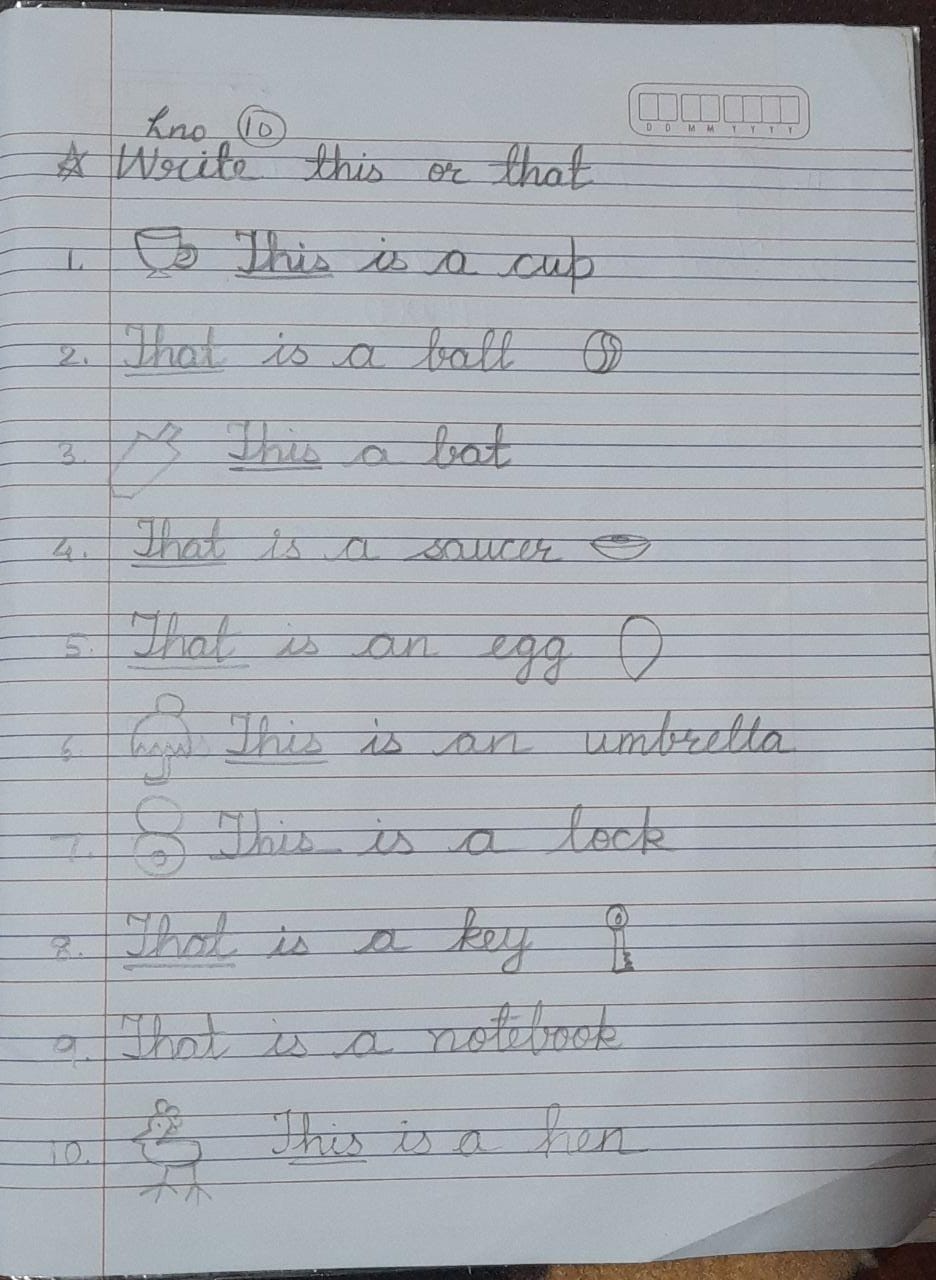 Lno 10
☆ Write this or that
1. This is a cup
2. That is a ball
3. This a bat
4. That is a saucer
5. That is an egg
6. This is an umbrella
7. This is a lock
8. That is a key
9. That is a notebook
10. This is a hen
D D M M Y Y Y Y